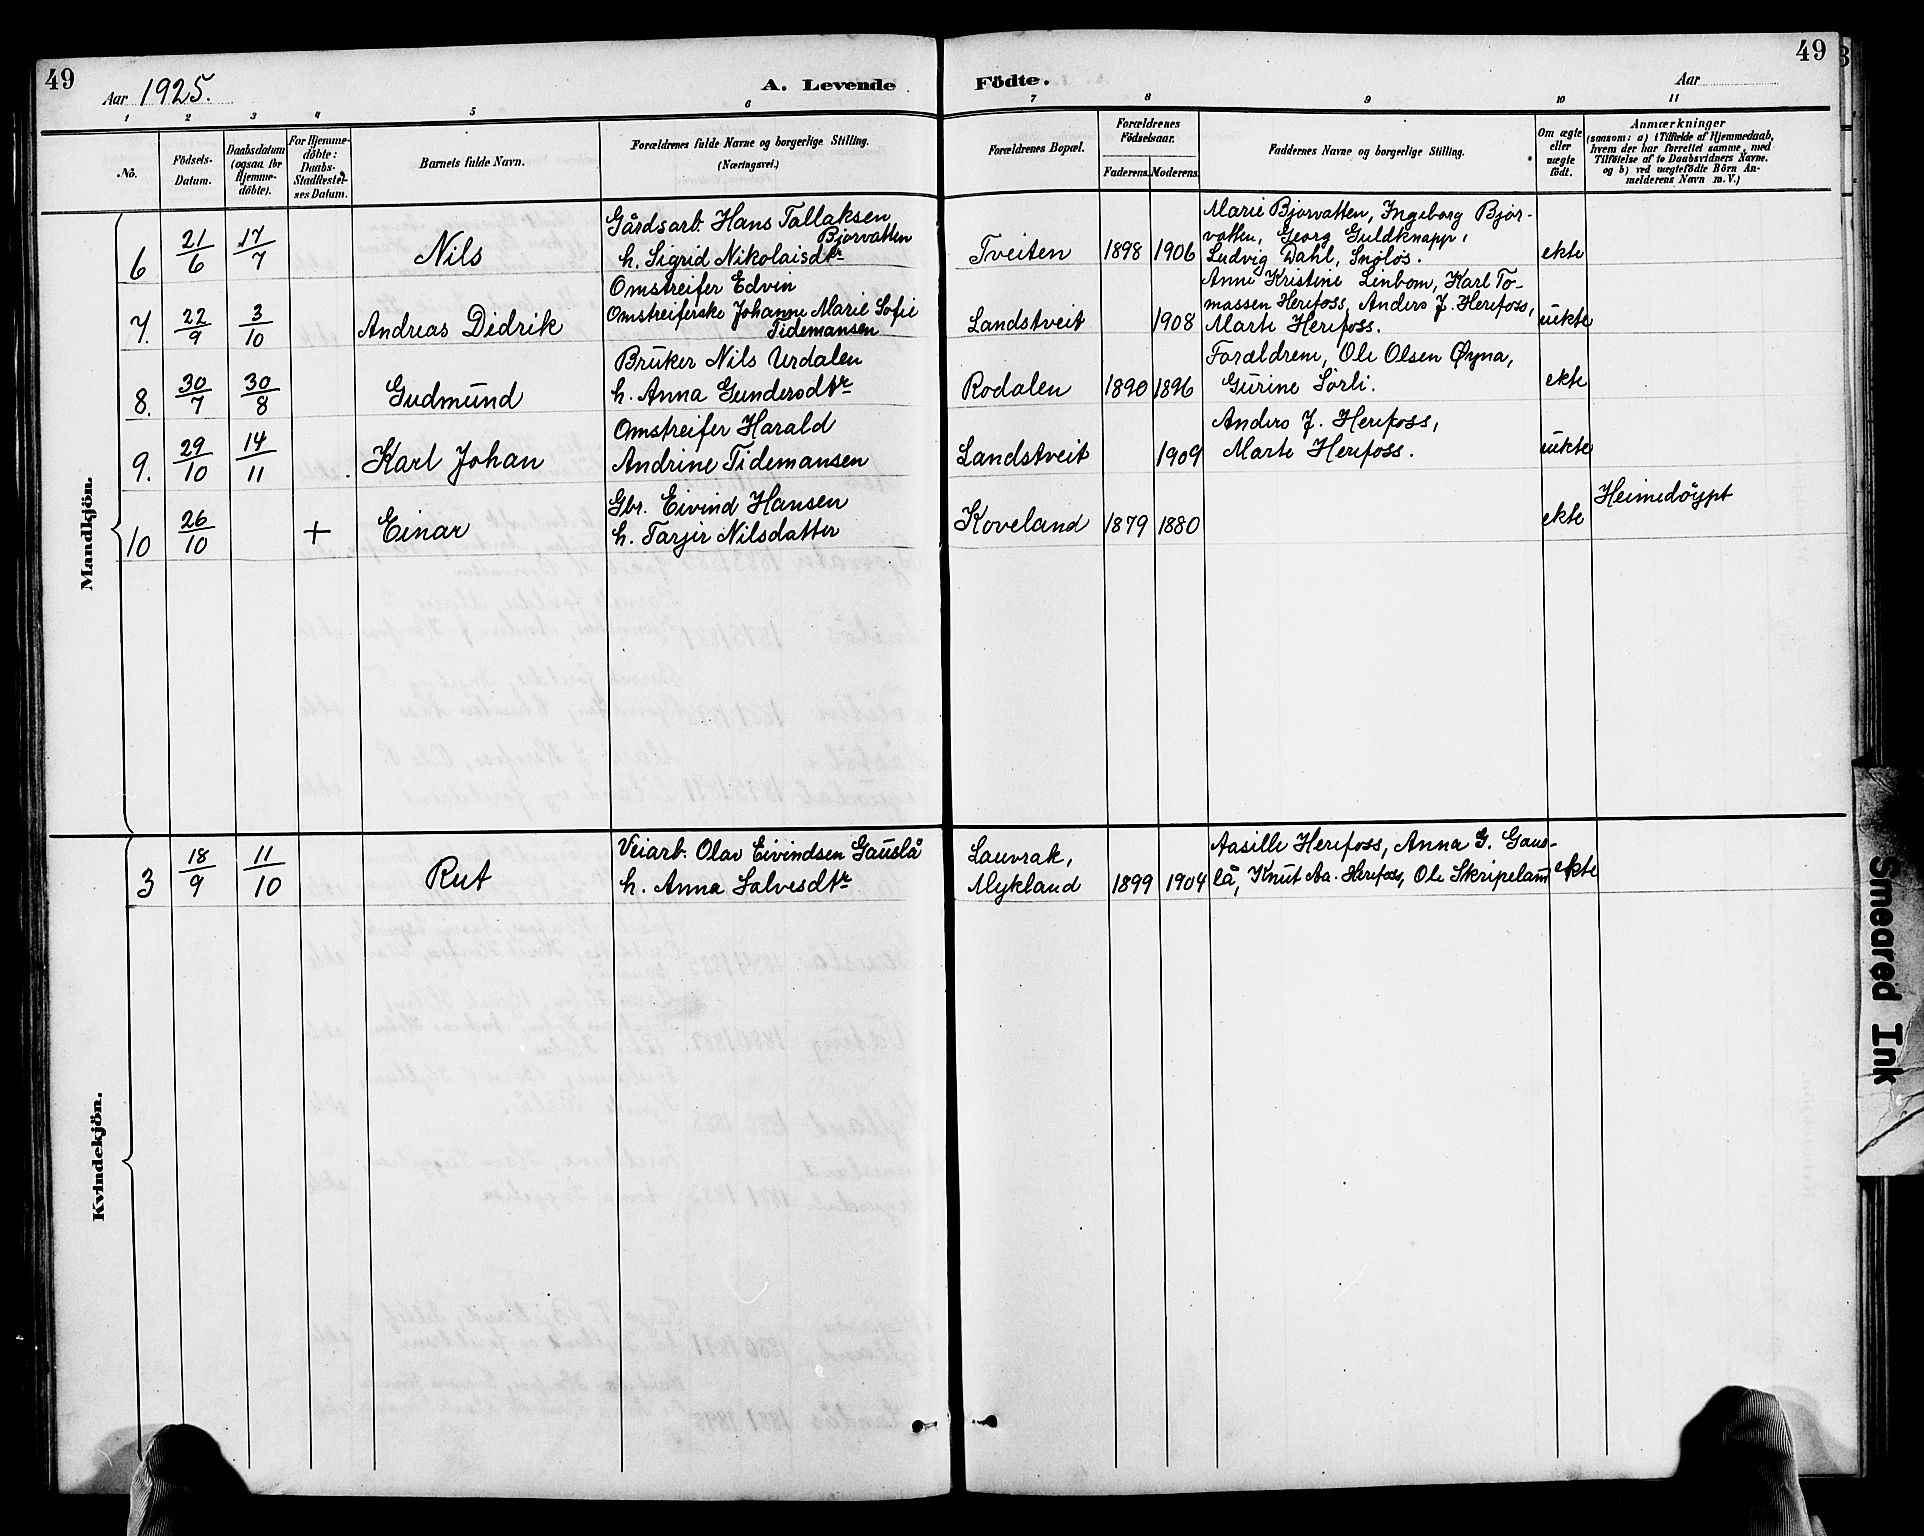 49
Aar 1925.
A. Levende Födte.
Aar
49
1 2 3 4 5 6 7 8 9 10 11
No.
Födsels-
Datum.
Daabsdatum
(ogsaa for
Hjemme-
döbte).
For Hjemme-
döbte:
Daabs-
Stadfæstel-
ses Datum.
Barnets fulde Navn.
Forældrenes fulde Navne og borgerlige Stilling.
(Næringsvei.)
Forældrenes Bopæl.
Forældrenes
Födselsaar.
Faderens. Moderens.
Faddernes Navne og borgerlige Stilling.
Om ægte
eller
uægte
födt.
Anmærkninger
(saasom: a) i Tilfælde af Hjemmedaab,
hvem der har forrettet samme, med
Tilföielse af to Daabsvidners Navne.
og b) ved uægtefödte Börn An-
melderens Navn m. V.)
Mandkjön.
6 21/6 17/7 Nils
Gårdsarb. Hans Tallaksen
Bjorvatten
h. Sigrid Nikolaisdtr
Tveiten 1898 1906
Marie Bjorvatten, Ingeborg Bjor-
vatten, Georg Guldknapp,
Ludvig Dahl, Snöløs.
ekte
7. 22/9 3/10 Andreas Didrik
Omstreifer Edvin
Omstreiferske Johanne Marie Sofie
Tidemansen
Landstveit 1908
Anne Kristine Linbom, Karl To-
massen Herefoss, Anders J. Herefoss,
Marte Herefoss.
uekte
8. 30/7 30/8 Gudmund
Bruker Nils Urdalen
h. Anna Gundersdtr
Rodalen 1890 1896
Forældrene, Ole Olsen Øyna,
Gurine Sörli.
ekte
9. 29/10 14/11 Karl Johan
Omstreifer Harald
Andrine Tidemansen
Landstveit 1909
Anders J. Herefoss,
Marte Herefoss.
uekte
10 26/10 + Einar
Gbr. Eivind Hansen
h. Tarjer Nilsdatter
Koveland 1879 1880
ekte
Heimedöypt
Kvindekjön.
3 18/9 11/10 Rut
Veiarb. Olav Eivindsen Gauslå
h. Anna Salvesdtr
Lauvrak,
Mykland 1899 1904
Aasille Herefoss, Anna G. Gaus-
lå, Knut Aa. Herefoss, Ole Skripeland
ekte
Smeared Ink